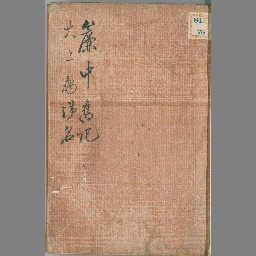 簾中舊記
大上﨟御名